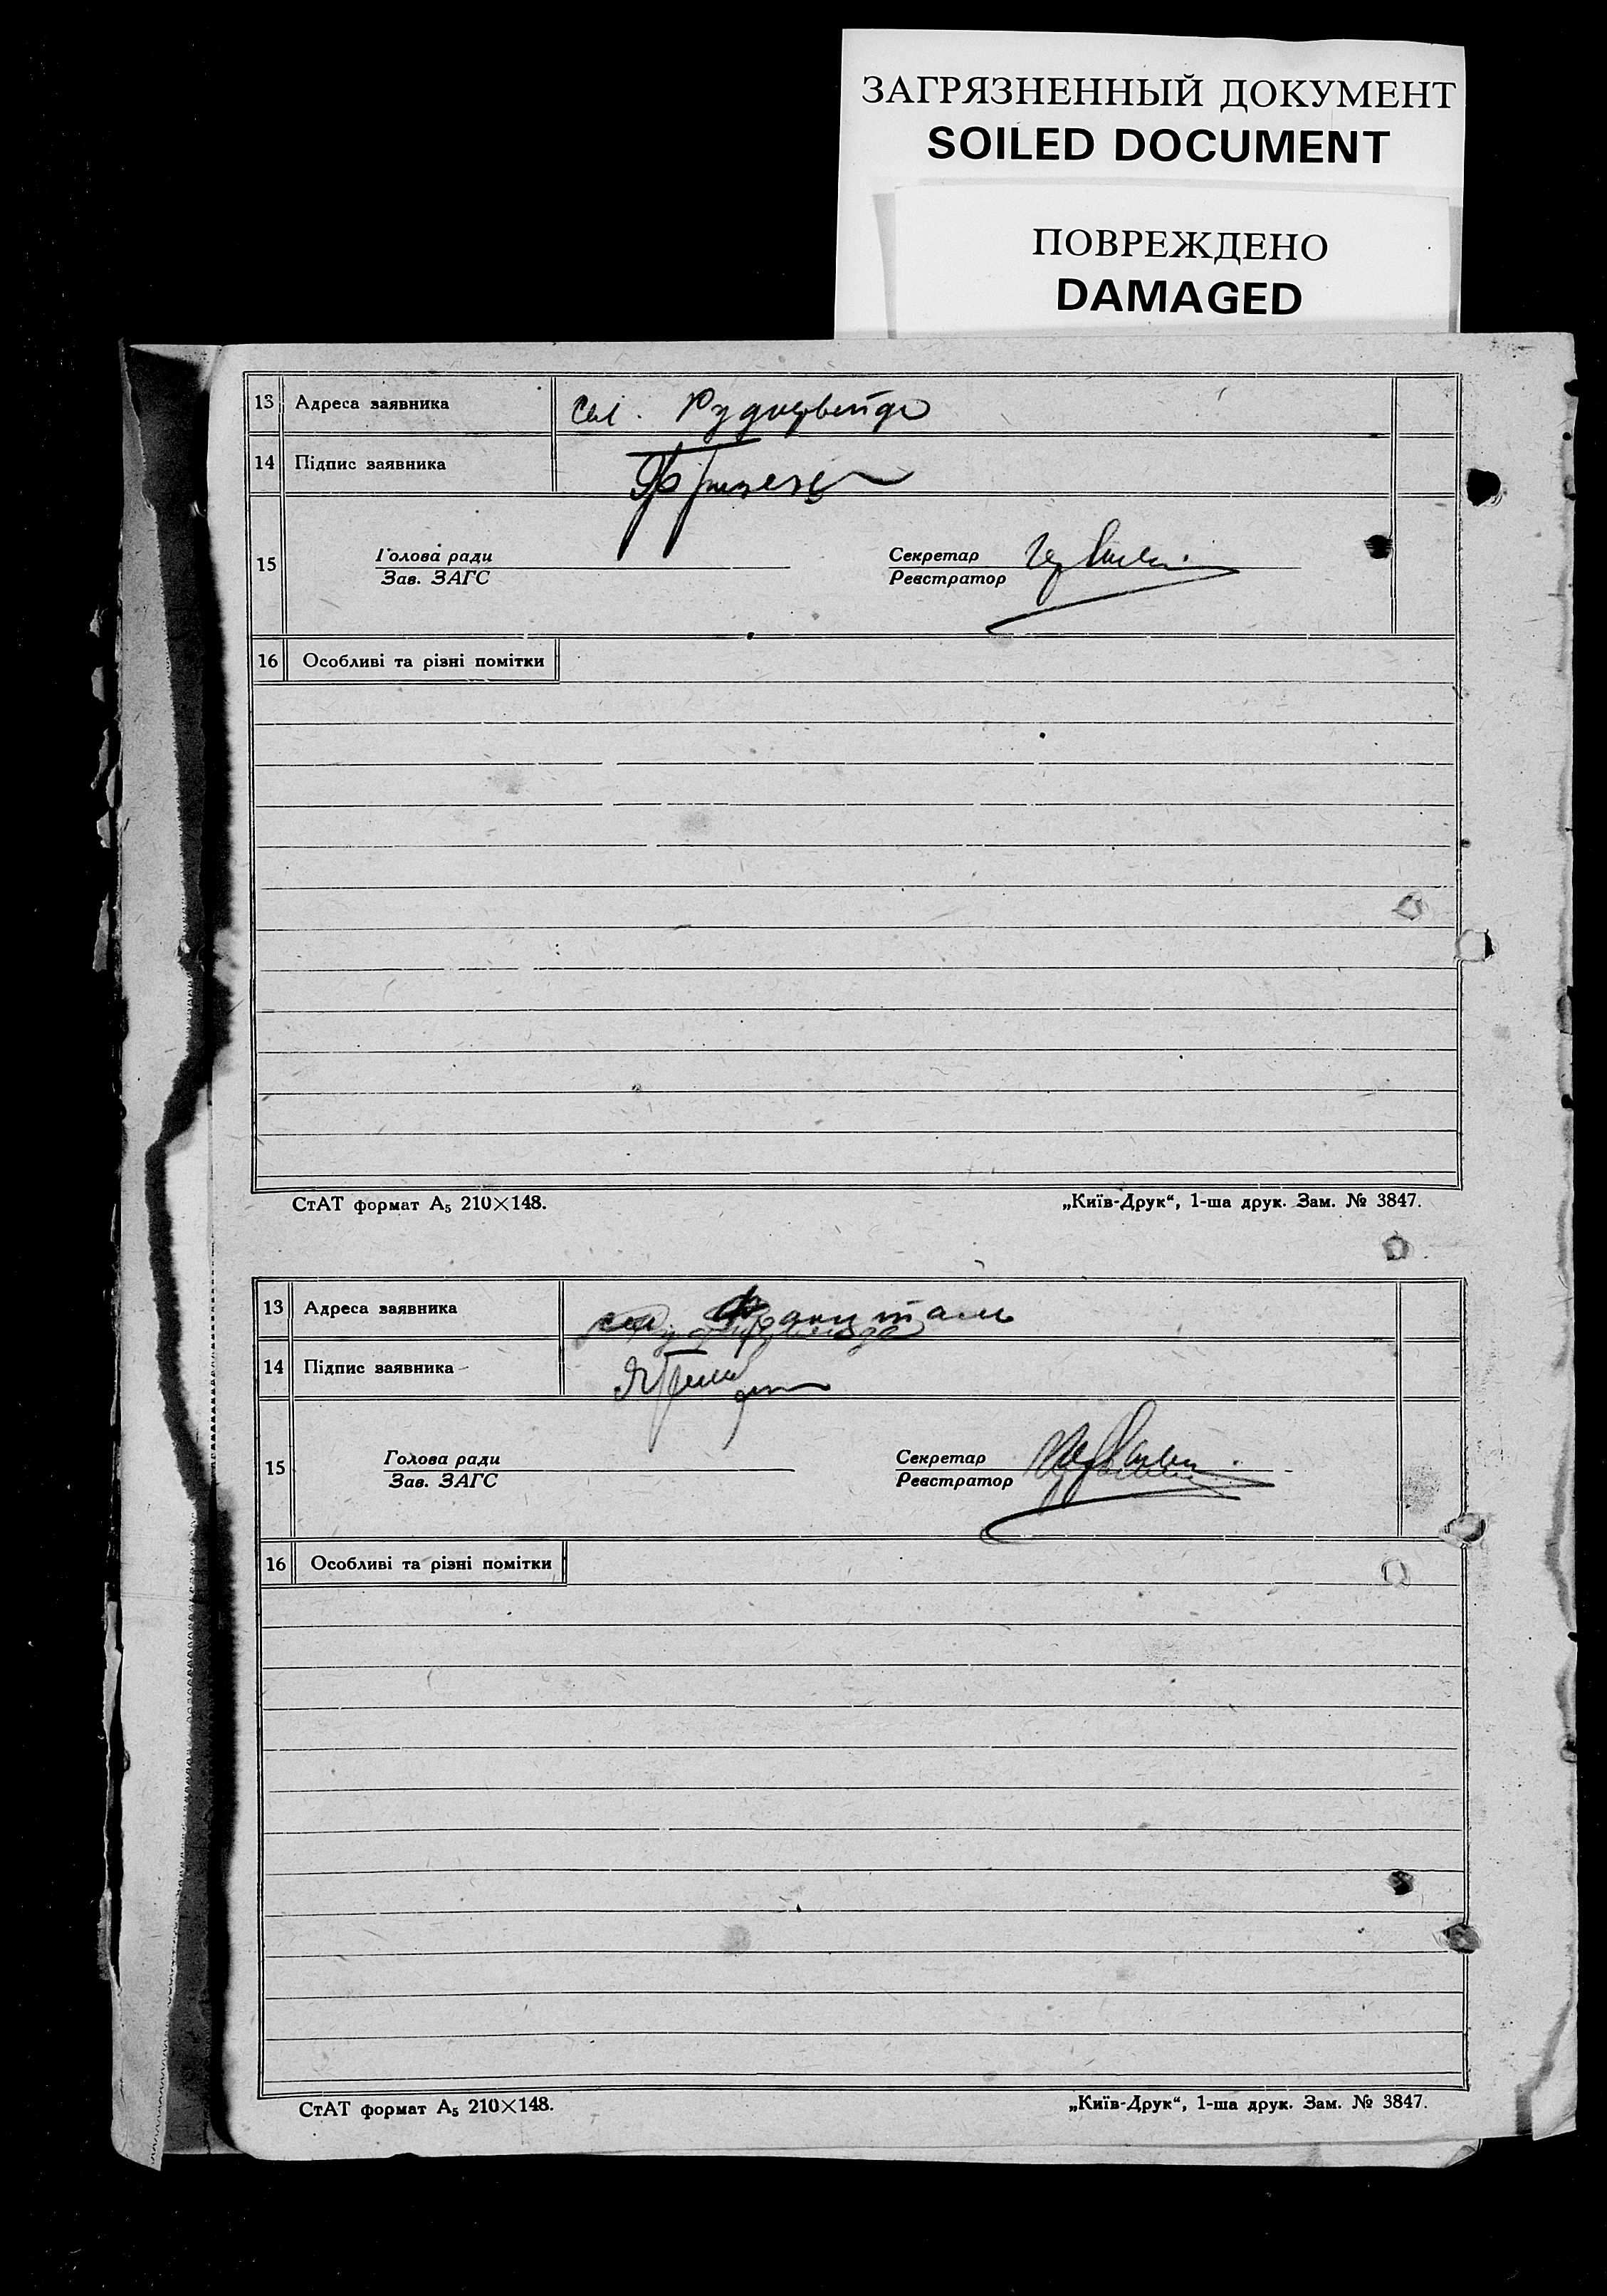 ЗАГРЯЗНЕННЫЙ ДОКУМЕНТ
SOILED DOCUMENT
ПОВРЕЖДЕНО
DAMAGED
13 Адреса заявника сел.
14 Підпис заявника
15 Голова ради Секретар
Зав. ЗАГС Реєстратор
16 Особливі та різні помітки
СтАТ формат А₅ 210×148. „Київ-Друк“, 1-ша друк. Зам. № 3847.
13 Адреса заявника
14 Підпис заявника
15 Голова ради Секретар
Зав. ЗАГС Реєстратор
16 Особливі та різні помітки
СтАТ формат А₅ 210×148. „Київ-Друк“, 1-ша друк. Зам. № 3847.